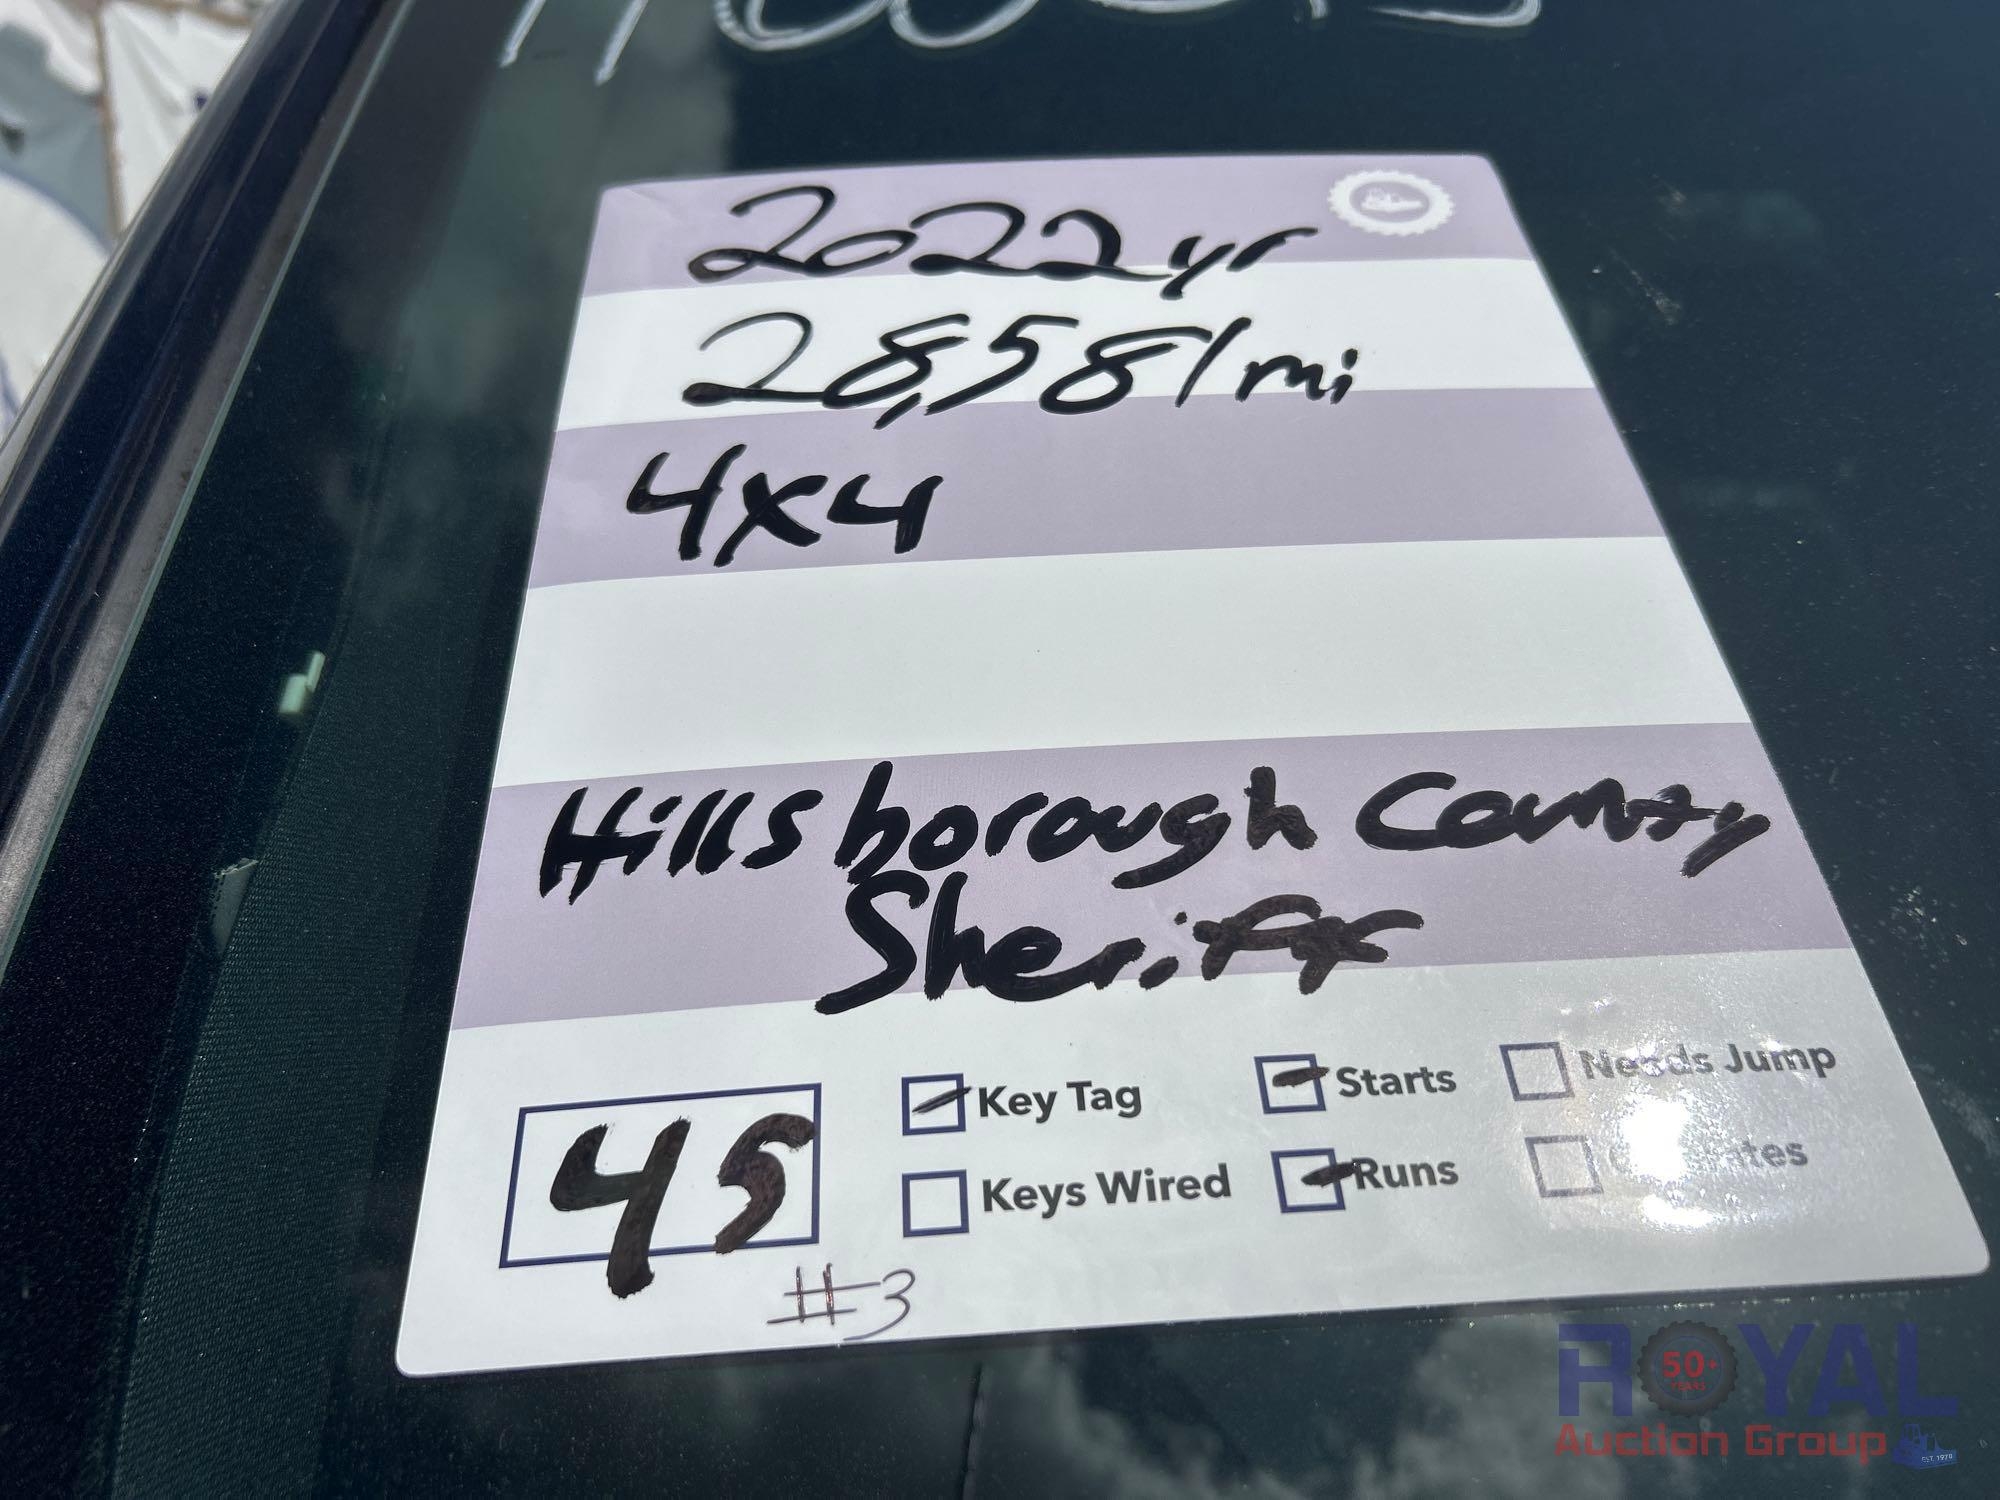 2022yr
28,581mi
4x4
Hillsborough County
Sheriff
45
Key Tag
Starts
Needs Jump
Keys Wired
Runs
#3
ROYAL
50+
YEARS
Auction Group
EST. 1970